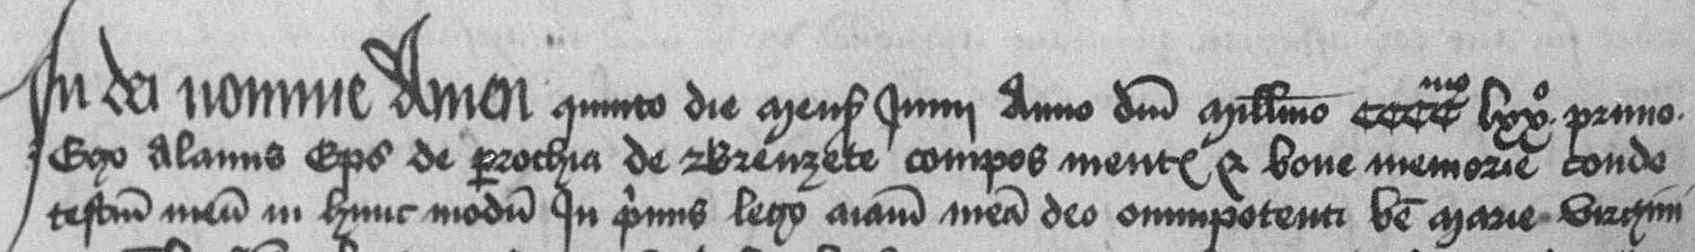 In dei nomine Amen quinto die mens Junij Anno dm̄ millmo ccccmo lxxo primo.
Ego Alanus Eps de prochia de Brenzete compos ment & bone memorie condo
testm̄ meū in hunc modū In pimis lego aiam̄ meā deo omnipotenti bē marie virgini